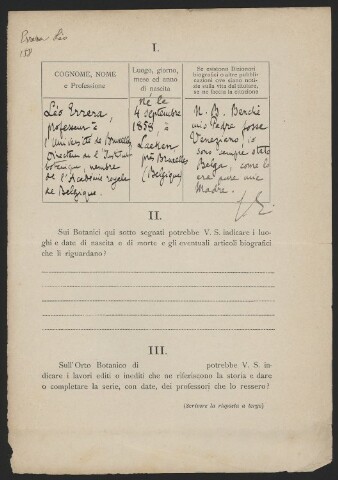 Errera Léo
158
I.
COGNOME, NOME
e Professione
Luogo, giorno,
mese ed anno
di nascita
Se esistono Dizionari
biografici o altre pubblicazioni
che diano notizie
sulla vita del titolare,
se ne faccia la citazione
Léo Errera,
professeur à
l'Université de Bruxelles,
Directeur de l'Institut
botanique, membre
de l'Académie royale
de Belgique.
Né le
4 septembre
1858 à
Laeken
près Bruxelles
(Belgique)
N. B. Benchè
mio Padre fosse
Veneziano, io
sono sempre stato
Belga, come lo
era pure mia
Madre.
L. E.
II.
Sui Botanici qui sotto segnati potrebbe V. S. indicare i luo-
ghi e date di nascita e di morte e gli eventuali articoli biografici
che li riguardano?
III.
Sull'Orto Botanico di potrebbe V. S. in-
dicare i lavori editi o inediti che ne riferiscono la storia e dare
o completare la serie, con date, dei professori che lo ressero?
(Scrivere la risposta a tergo)